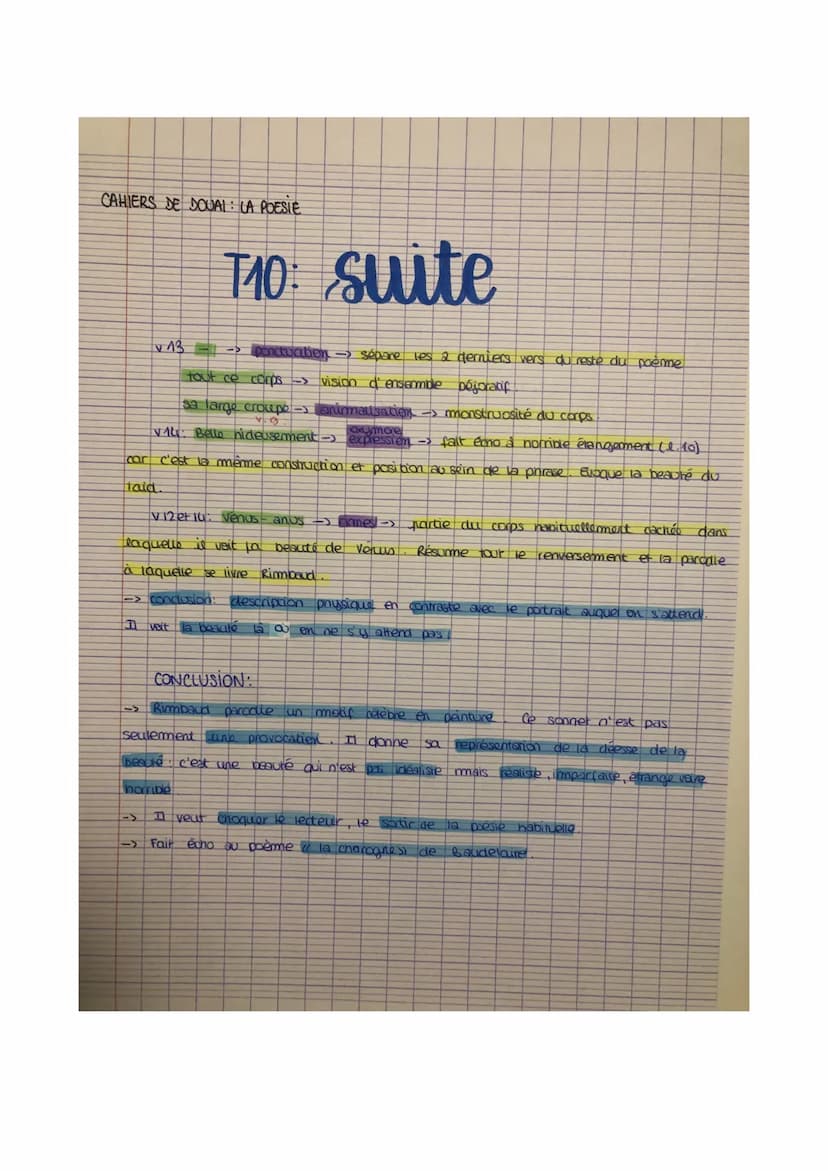 CAHIERS DE DOUAI : LA POESIE
T10: suite
v 13 - -> ponctuation -> sépare les 2 derniers vers du reste du poème
tout ce corps -> vision d'ensemble péjoratif
sa large croupe -> animalisation -> monstruosité du corps.
v.9
v 14: Belle hideusement -> oxymore expression -> fait écho à horrible étrangement (l.10)
car c'est la même construction et position au sein de la phrase. Evoque la beauté du
laid.
v 12 et 14: Vénus - anus -> rimes -> partie du corps habituellement cachée dans
laquelle il voit la beauté de Vénus. Résume tout le renversement et la parodie
à laquelle se livre Rimbaud.
-> conclusion: description physique en contraste avec le portrait auquel on s'attend.
Il voit la beauté là où on ne s'y attend pas!
CONCLUSION:
-> Rimbaud parodie un motif célèbre en peinture. Ce sonnet n'est pas
seulement une provocation. Il donne sa représentation de la déesse de la
beauté : c'est une beauté qui n'est pas idéaliste mais réaliste, imparfaite, étrange voire
horrible
-> Il veut choquer le lecteur, le sortir de la poésie habituelle.
-> Fait écho au poème « la charogne » de Baudelaire.